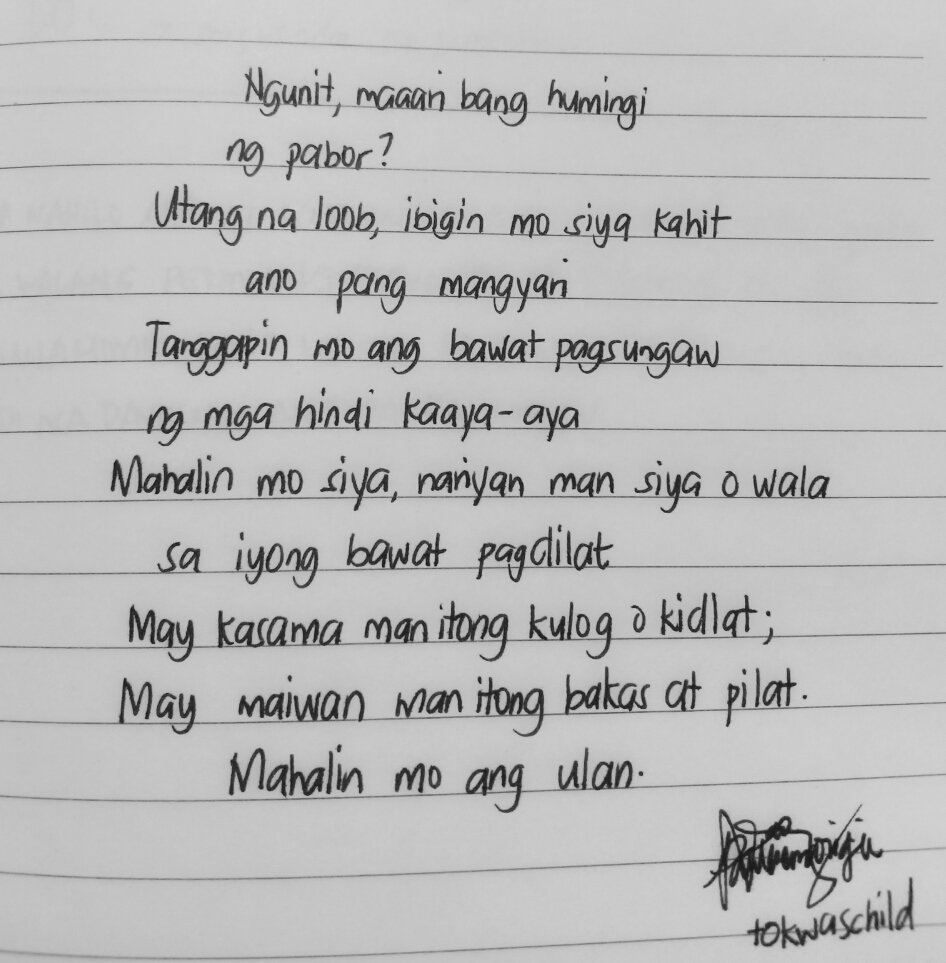 Ngunit, maaari bang humingi
ng pabor?
Utang na loob, ibigin mo siya kahit
ano pang mangyari
Tanggapin mo ang bawat pagsungaw
ng mga hindi kaaya-aya
Mahalin mo siya, nariyan man siya o wala
sa iyong bawat pagdilat
May kasama man itong kulog o kidlat;
May maiwan man itong bakas at pilat.
Mahalin mo ang ulan.
tokwaschild